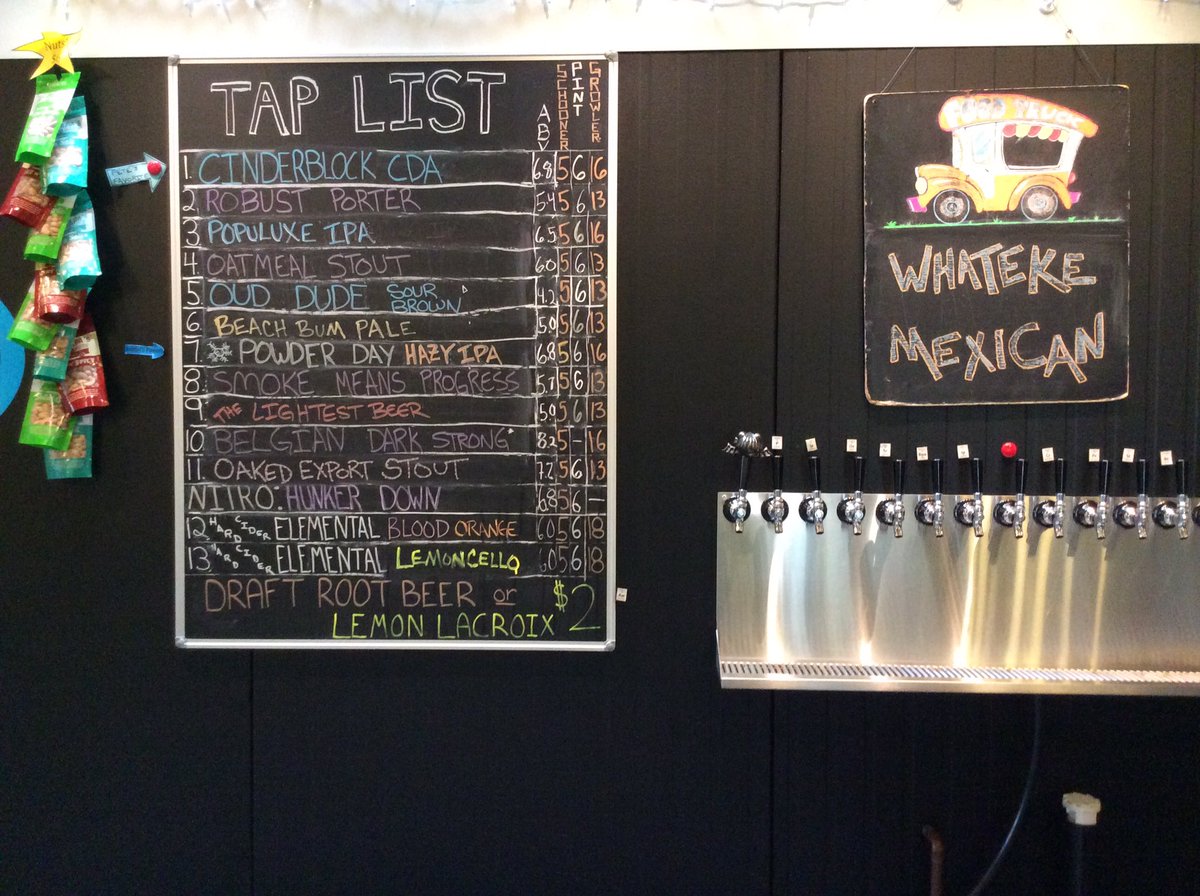 Nuts
TAP LIST
ABV SCHOONER PINT GROWLER
1. CINDERBLOCK CDA 6.8 5 6 16
2. ROBUST PORTER 5.4 5 6 13
3. POPULUXE IPA 6.5 5 6 16
4. OATMEAL STOUT 6.0 5 6 13
5. OUD DUDE SOUR BROWN 4.2 5 6 13
6. BEACH BUM PALE 5.0 5 6 13
7. POWDER DAY HAZY IPA 6.8 5 6 16
8. SMOKE MEANS PROGRESS 5.7 5 6 13
9. THE LIGHTEST BEER 5.0 5 6 13
10. BELGIAN DARK STRONG* 8.2 5 - 16
11. OAKED EXPORT STOUT 7.2 5 6 13
NITRO: HUNKER DOWN 6.8 5 6 -
12. HARD CIDER ELEMENTAL BLOOD ORANGE 6.0 5 6 18
13. HARD CIDER ELEMENTAL LEMONCELLO 6.0 5 6 18
DRAFT ROOT BEER or $2
LEMON LACROIX
FOOD TRUCK
WHATEKE
MEXICAN